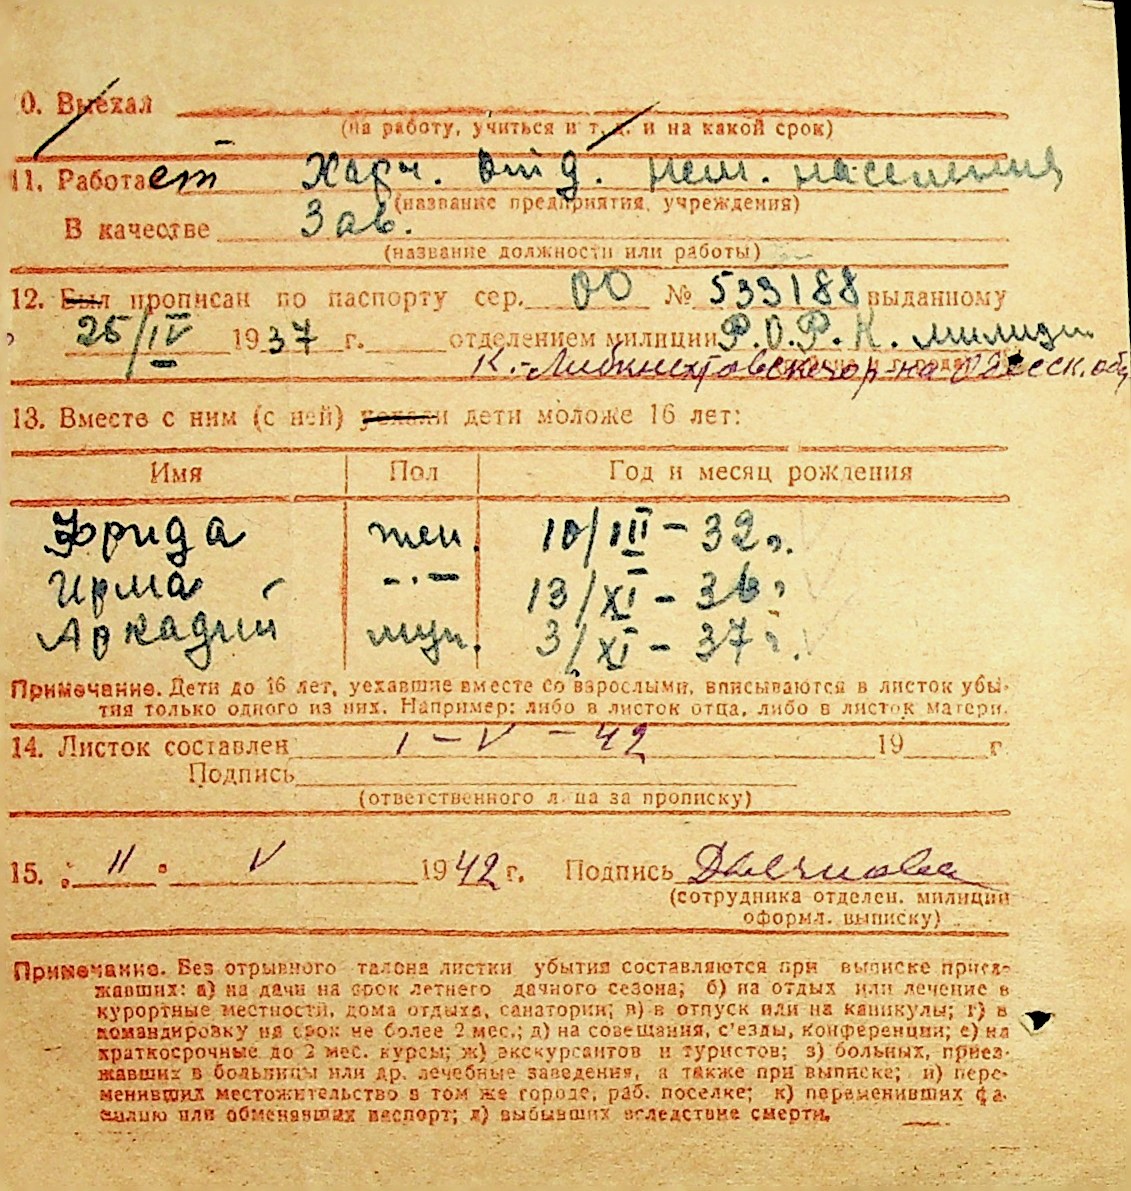 10. Выехал
(на работу, учиться и т. д. и на какой срок)
11. Работает Харч. отд. нем. населения
(название предприятия, учреждения)
В качестве Зав.
(название должности или работы)
12. Был прописан по паспорту сер. ОО № 533188 выданному
25/IV 1937 г. отделением милиции Р.О.Р.К. милиции
К.-Либкнехтовского р-на Одесск. обл
13. Вместе с ним (с ней) уехали дети моложе 16 лет:
Имя Пол Год и месяц рождения
Фрида жен. 10/III - 32 г.
Ирма -·- 13/XI - 36 г.
Аркадий муж. 3/XI - 37 г.
Примечание. Дети до 16 лет, уехавшие вместе со взрослыми, вписываются в листок убы-
тия только одного из них. Например: либо в листок отца, либо в листок матери.
14. Листок составлен 1 - V - 42 19 г
Подпись
(ответственного лица за прописку)
15. „11" V 1942 г. Подпись
(сотрудника отделен. милиции
оформл. выписку)
Примечание. Без отрывного талона листки убытия составляются при выписке приез-
жавших: а) на дачи на срок летнего дачного сезона; б) на отдых или лечение в
курортные местности, дома отдыха, санатории; в) в отпуск или на каникулы; г) в
командировку на срок не более 2 мес.; д) на совещания, с'езды, конференции; е) на
краткосрочные до 2 мес. курсы; ж) экскурсантов и туристов; з) больных, приез-
жавших в больницы или др. лечебные заведения, а также при выписке; и) пере-
менивших местожительство в том же городе, раб. поселке; к) переменивших фа-
милию или обменявших паспорт; л) выбывших вследствие смерти.